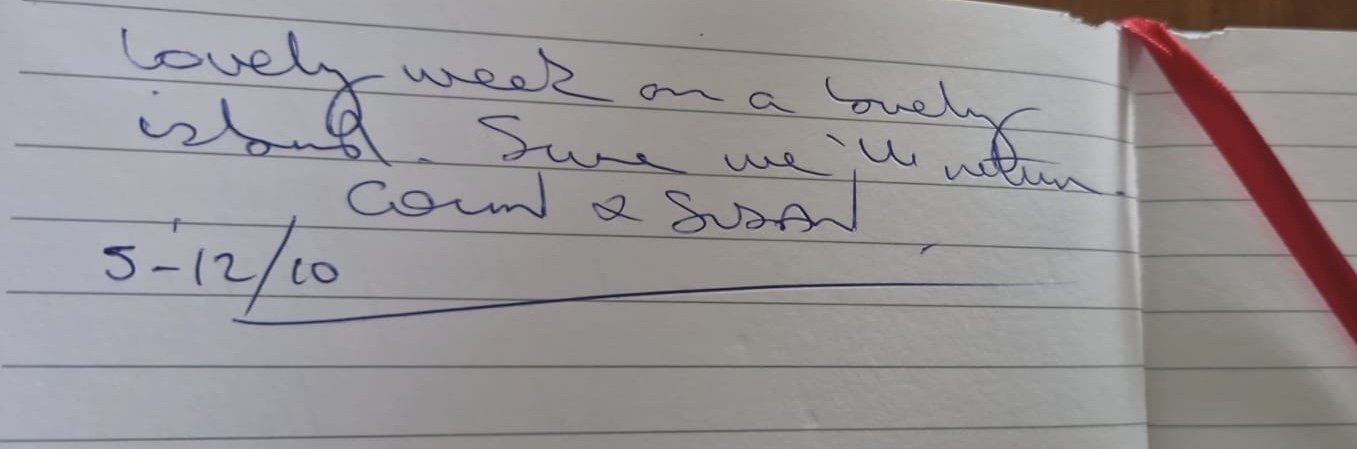 Lovely week on a lovely
island. Sure we'll return.
Colin & Susan
5-12/10